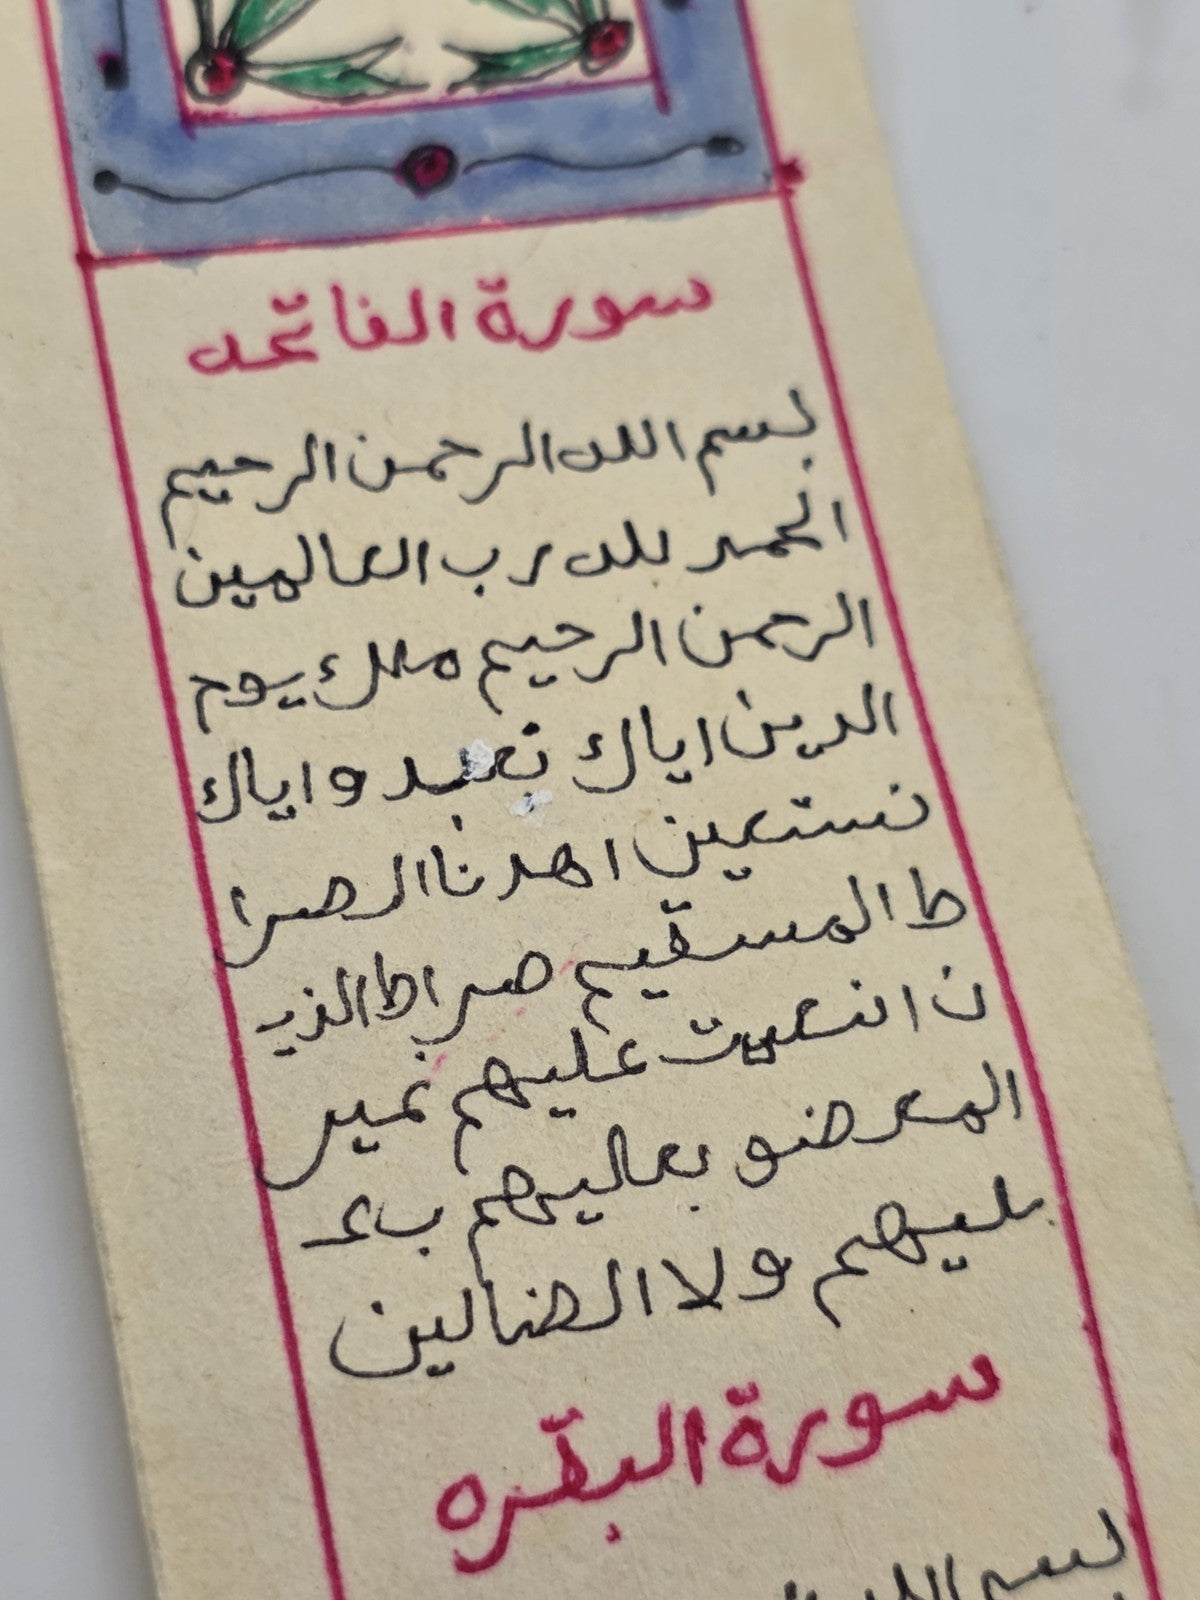 سورة الفاتحه
بسم الله الرحمن الرحيم
الحمد لله رب العالمين
الرحمن الرحيم ملك يوم
الدين اياك نعبد واياك
نستعين اهدنا الصرا
ط المسقيم صراط الذيـ
ن انعمت عليهم غير
المعرضو بعاليهم ب عـ
ـليهم ولا الضالين
سورة البقره
بسم الله